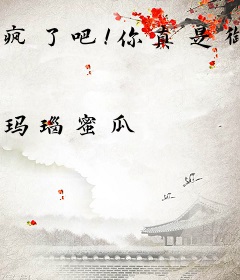 疯了吧!你真是
玛瑙蜜瓜